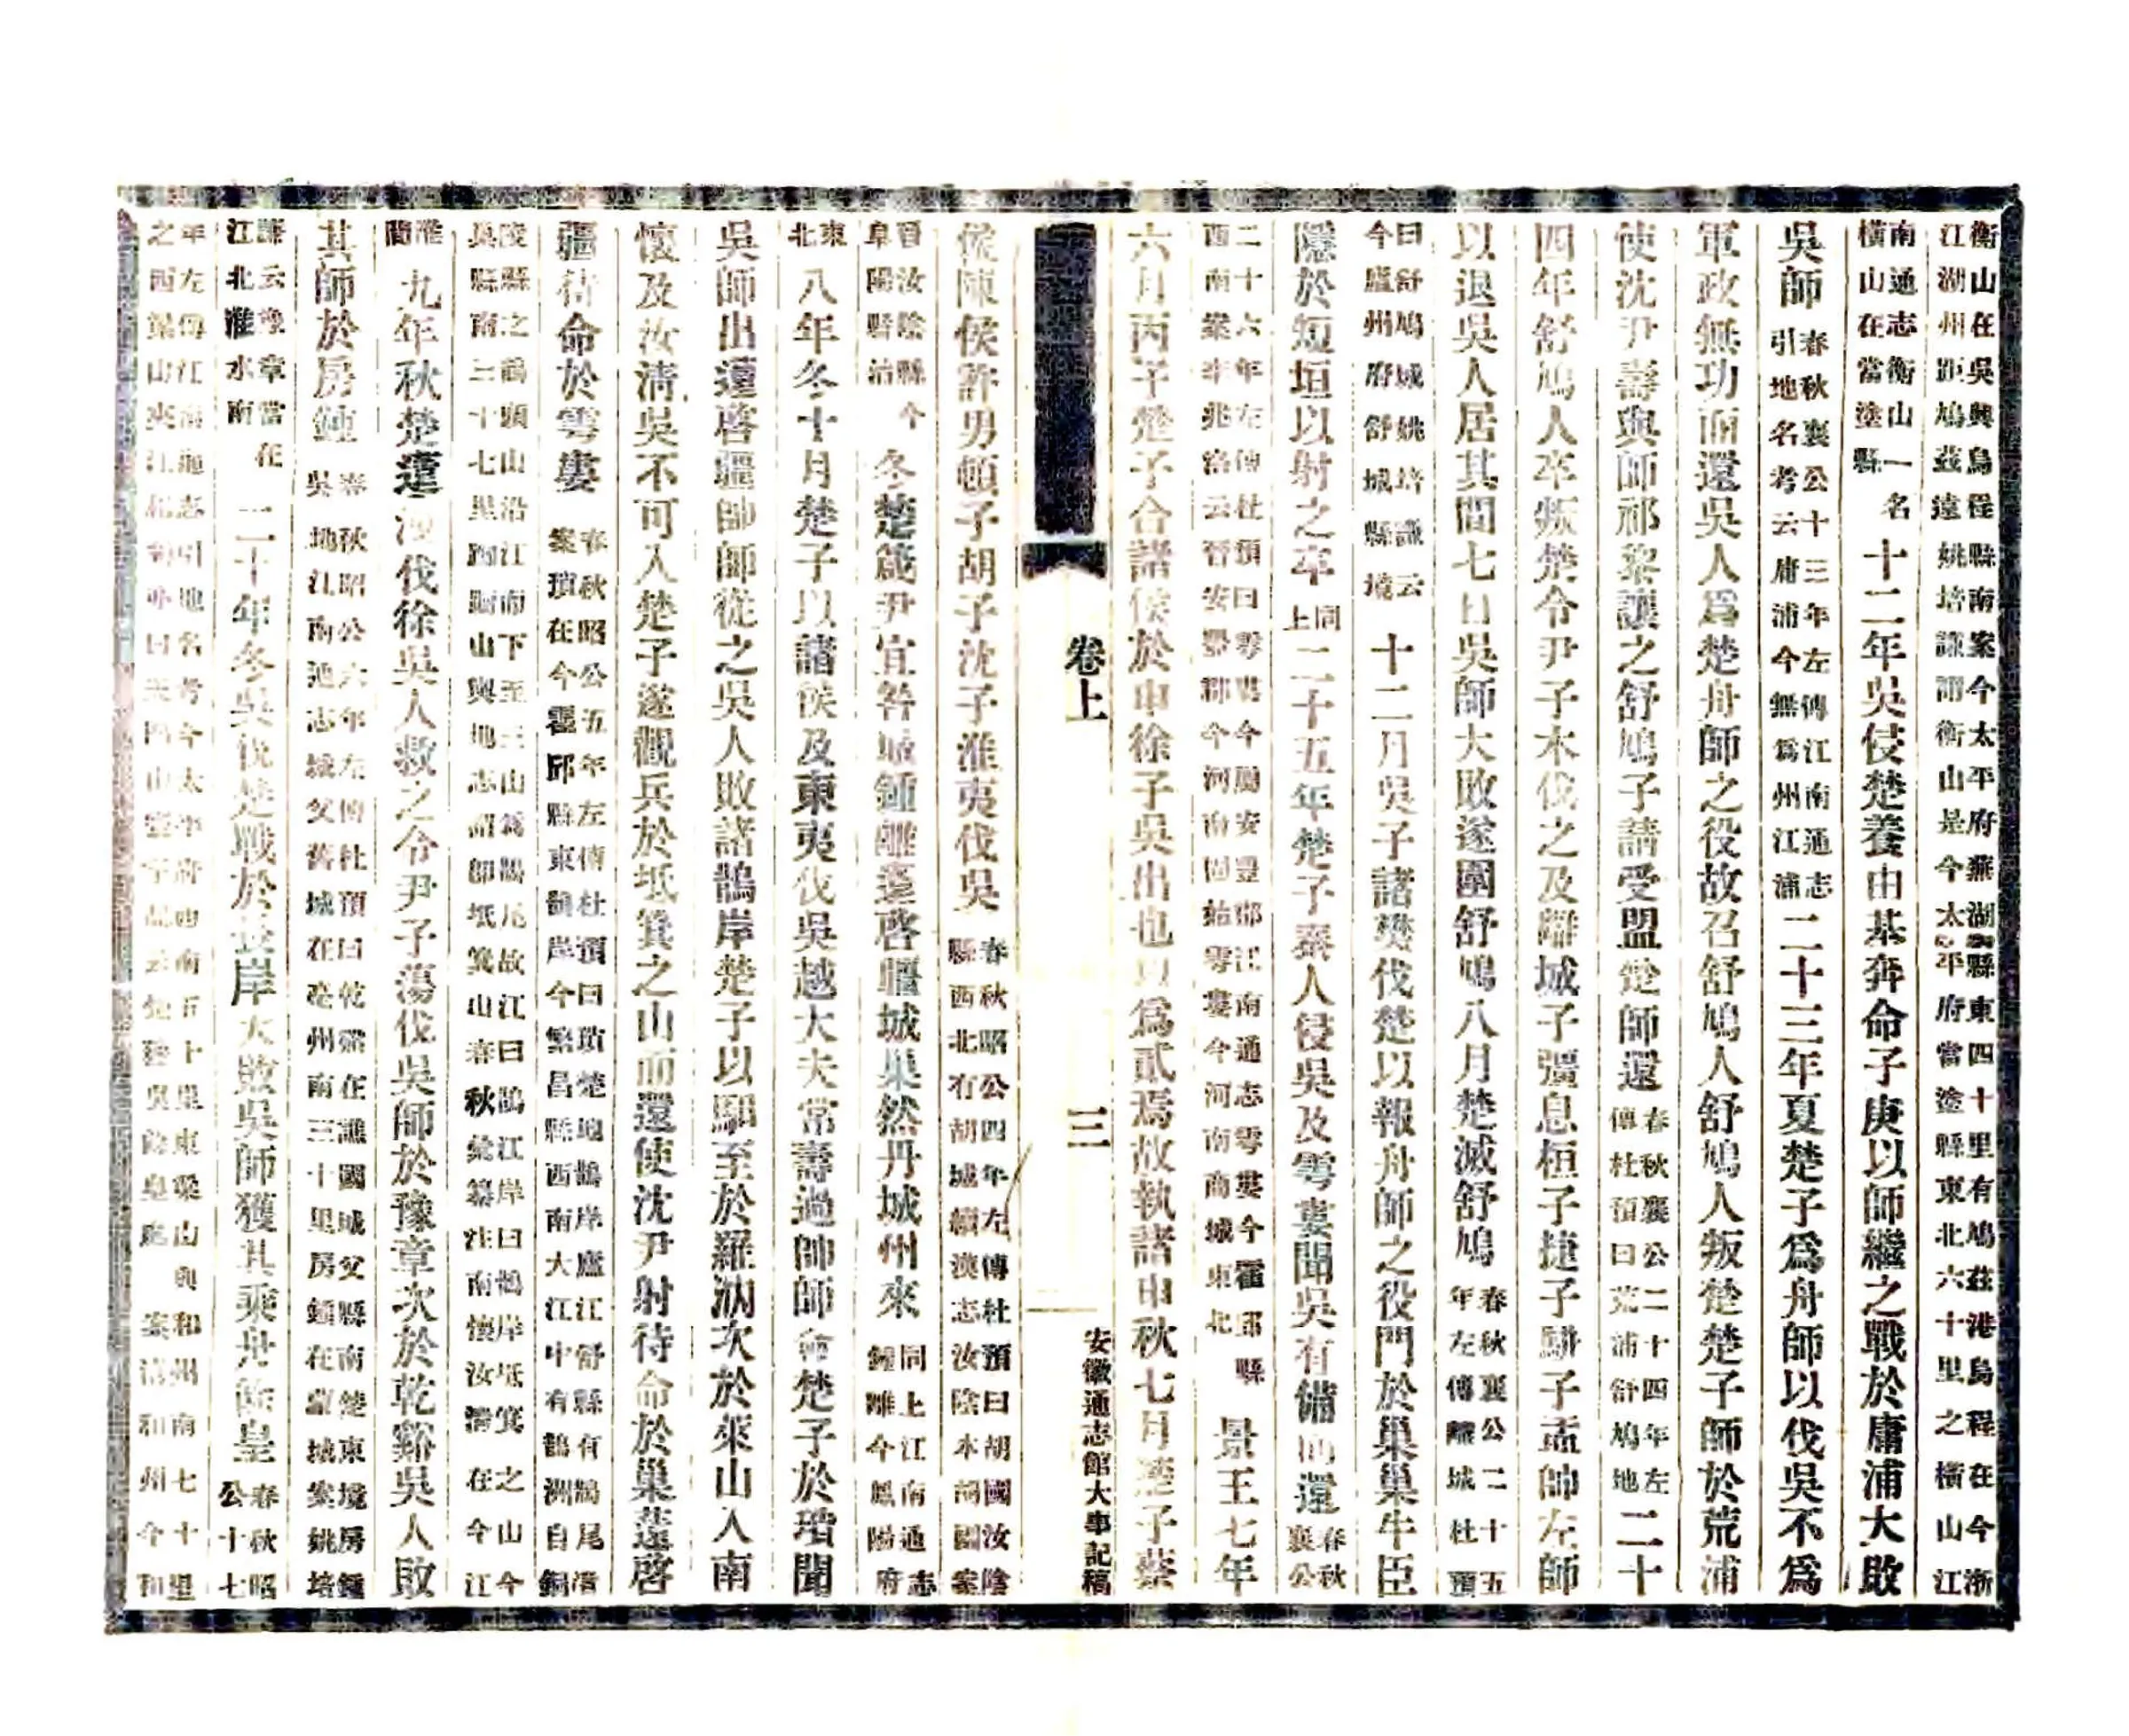 衡山在吳興烏程縣南案今太平府蕪湖縣東四十里有鳩茲港烏程在今浙
江湖州距鳩茲遠姚培謙謂衡山是今太平府當塗縣東北六十里之橫山江
南通志衡山一名
橫山在當塗縣
十二年吳侵楚養由基奔命子庚以師繼之戰於庸浦大敗
吳師
春秋襄公十三年左傳江南通志
引地名考云庸浦今無爲州江浦
二十三年夏楚子爲舟師以伐吳不爲
軍政無功而還吳人爲楚舟師之役故召舒鳩人舒鳩人叛楚楚子師於荒浦
使沈尹壽與師祁黎讓之舒鳩子請受盟楚師還
春秋襄公二十四年左
傳杜預曰荒浦舒鳩地
二十
四年舒鳩人卒叛楚令尹子木伐之及離城子彊息桓子捷子駢子孟帥左師
以退吳人居其間七日吳師大敗遂圍舒鳩八月楚滅舒鳩
春秋襄公二十五
年左傳離城杜預
曰舒鳩城姚培謙云
今廬州府舒城縣境
十二月吳子諸樊伐楚以報舟師之役門於巢巢牛臣
隱於短垣以射之卒
同
上
二十五年楚子秦人侵吳及雩婁聞吳有備而還
春秋
襄公
二十六年左傳杜預曰雩婁今屬安豐郡江南通志雩婁今霍邱縣
西南案李兆洛云晉安豐郡今河南固始雩婁今河南商城東北
景王七年
六月丙子楚子合諸侯於申徐子吳出也以爲貳焉故執諸申秋七月楚子蔡
卷上
三
安徽通志館大事記稿
侯陳侯許男頓子胡子沈子淮夷伐吳
春秋昭公四年左傳杜預曰胡國汝陰
縣西北有胡城續漢志汝陰本胡國案
晉汝陰縣今
阜陽縣治
冬楚箴尹宜咎城鍾離薳啓疆城巢然丹城州來
同上江南通志
鍾離今鳳陽府
東
北
八年冬十月楚子以諸侯及東夷伐吳越大夫常壽過帥師會楚子於瑣聞
吳師出薳啓疆帥師從之吳人敗諸鵲岸楚子以馹至於羅汭次於萊山入南
懷及汝清吳不可入楚子遂觀兵於坻箕之山而還使沈尹射待命於巢薳啓
疆待命於雩婁
春秋昭公五年左傳杜預曰瑣楚地鵲岸廬江舒縣有鵲尾渚
案瑣在今霍邱縣東鵲岸今繁昌縣西南大江中有鵲洲自銅
陵縣之鵲頭山沿江而下至三山爲鵲尾故江曰鵲江岸曰鵲岸坻箕之山今
巢縣南三十七里踟躕山輿地志謂即坻箕山春秋彙纂注南懷汝清在今江
淮
間
九年秋楚薳洩伐徐吳人救之令尹子蕩伐吳師於豫章次於乾谿吳人敗
其師於房鍾
春秋昭公六年左傳杜預曰乾谿在譙國城父縣南楚東境房鍾
吳地江南通志城父舊城在亳州南三十里房鍾在蒙城案姚培
謙云豫章當在
江北淮水南
二十年冬吳伐楚戰於長岸大敗吳師獲其乘舟餘皇
春秋昭
公十七
年左傳江南通志引地名考今太平府西南五十里東梁山與和州南七十里
之西梁山夾江相對亦曰天門山案清和州今和